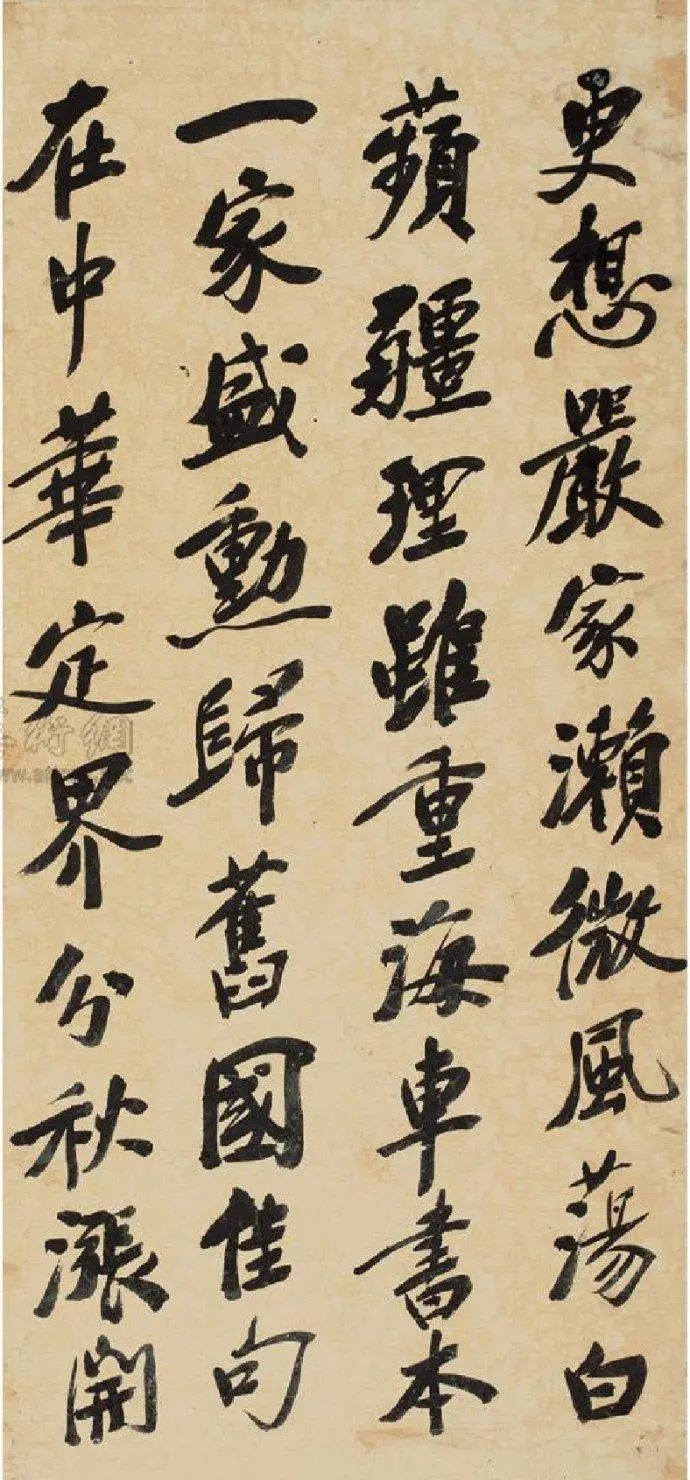 更想嚴家瀨微風蕩白
蘋疆理雖重海車書本
一家盛勳歸舊國佳句
在中華定界分秋漲開